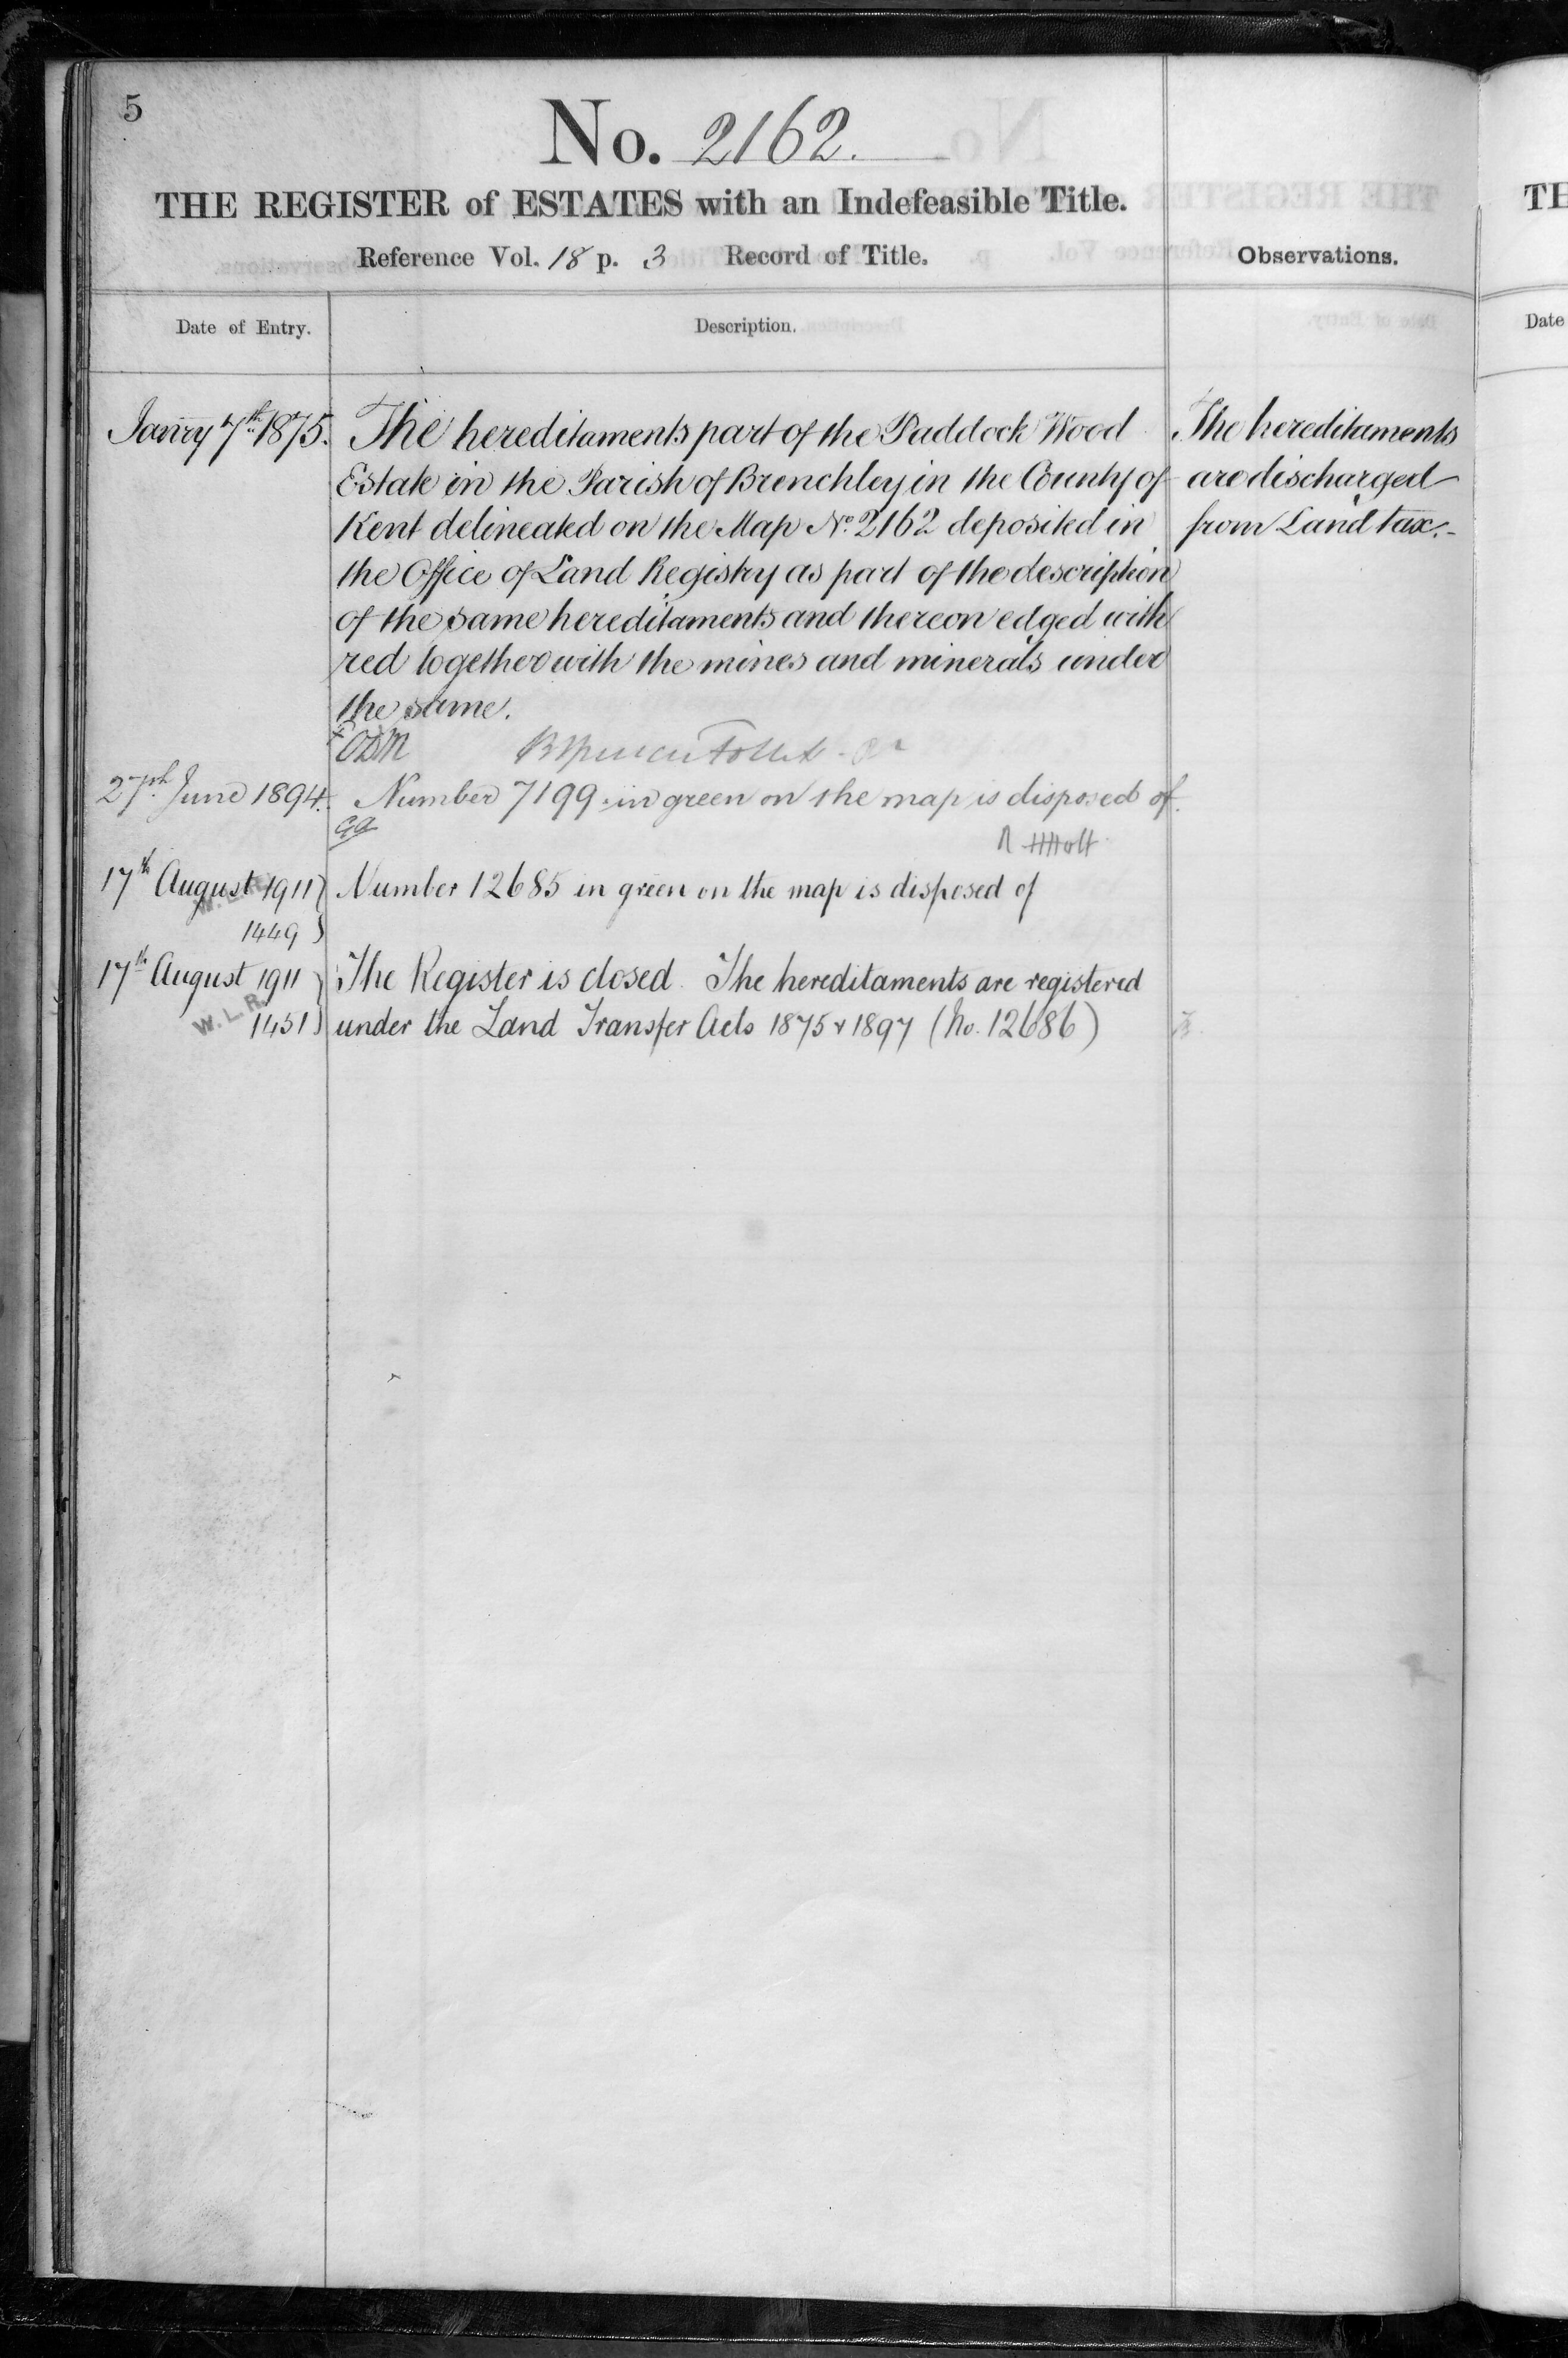 5
No. 2162.
THE REGISTER of ESTATES with an Indefeasible Title.
Reference Vol. 18 p. 3 Record of Title.
Observations.
Date of Entry.
Description.
Janry 7th 1875.
The hereditaments part of the Paddock Wood
Estate in the Parish of Brenchley in the County of
Kent delineated on the Map No. 2162 deposited in
the Office of Land Registry as part of the description
of the same hereditaments and thereon edged with
red together with the mines and minerals under
the same.
The hereditaments
are discharged
from Land tax.-
27th June 1894.
Number 7199 in green on the map is disposed of.
Holt
17th August 1911
1449
Number 12685 in green on the map is disposed of
17th August 1911
W.L.R.
1451
The Register is closed. The hereditaments are registered
under the Land Transfer Acts 1875 & 1897 (No. 12686)
TH
Date